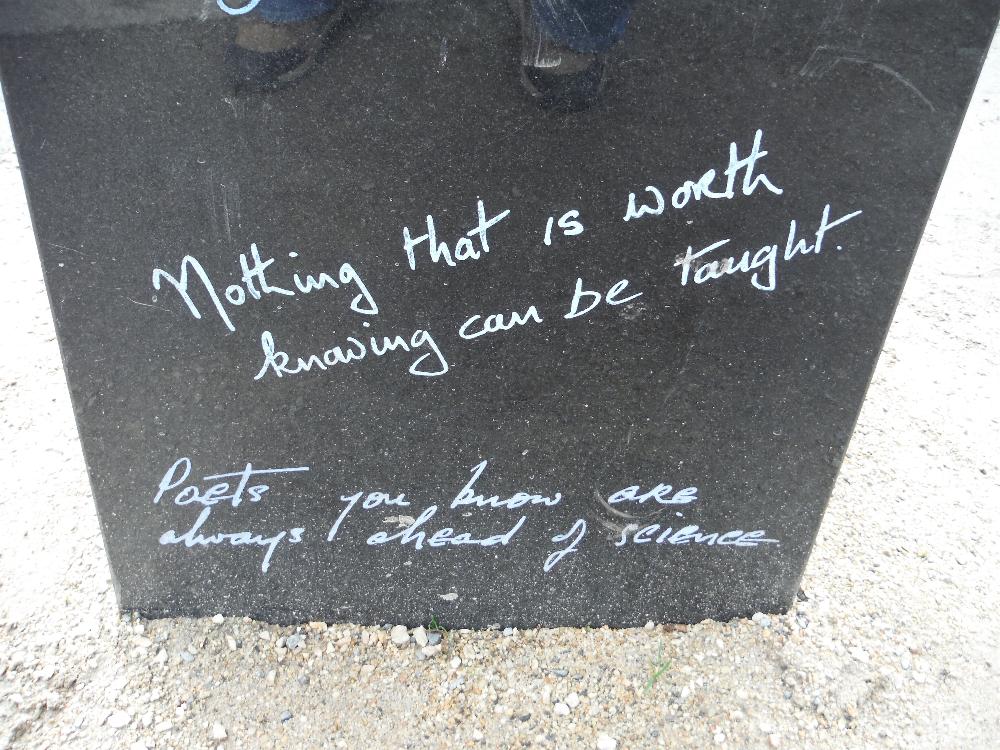 Nothing that is worth
knowing can be taught.
Poets you know are
always ahead of science